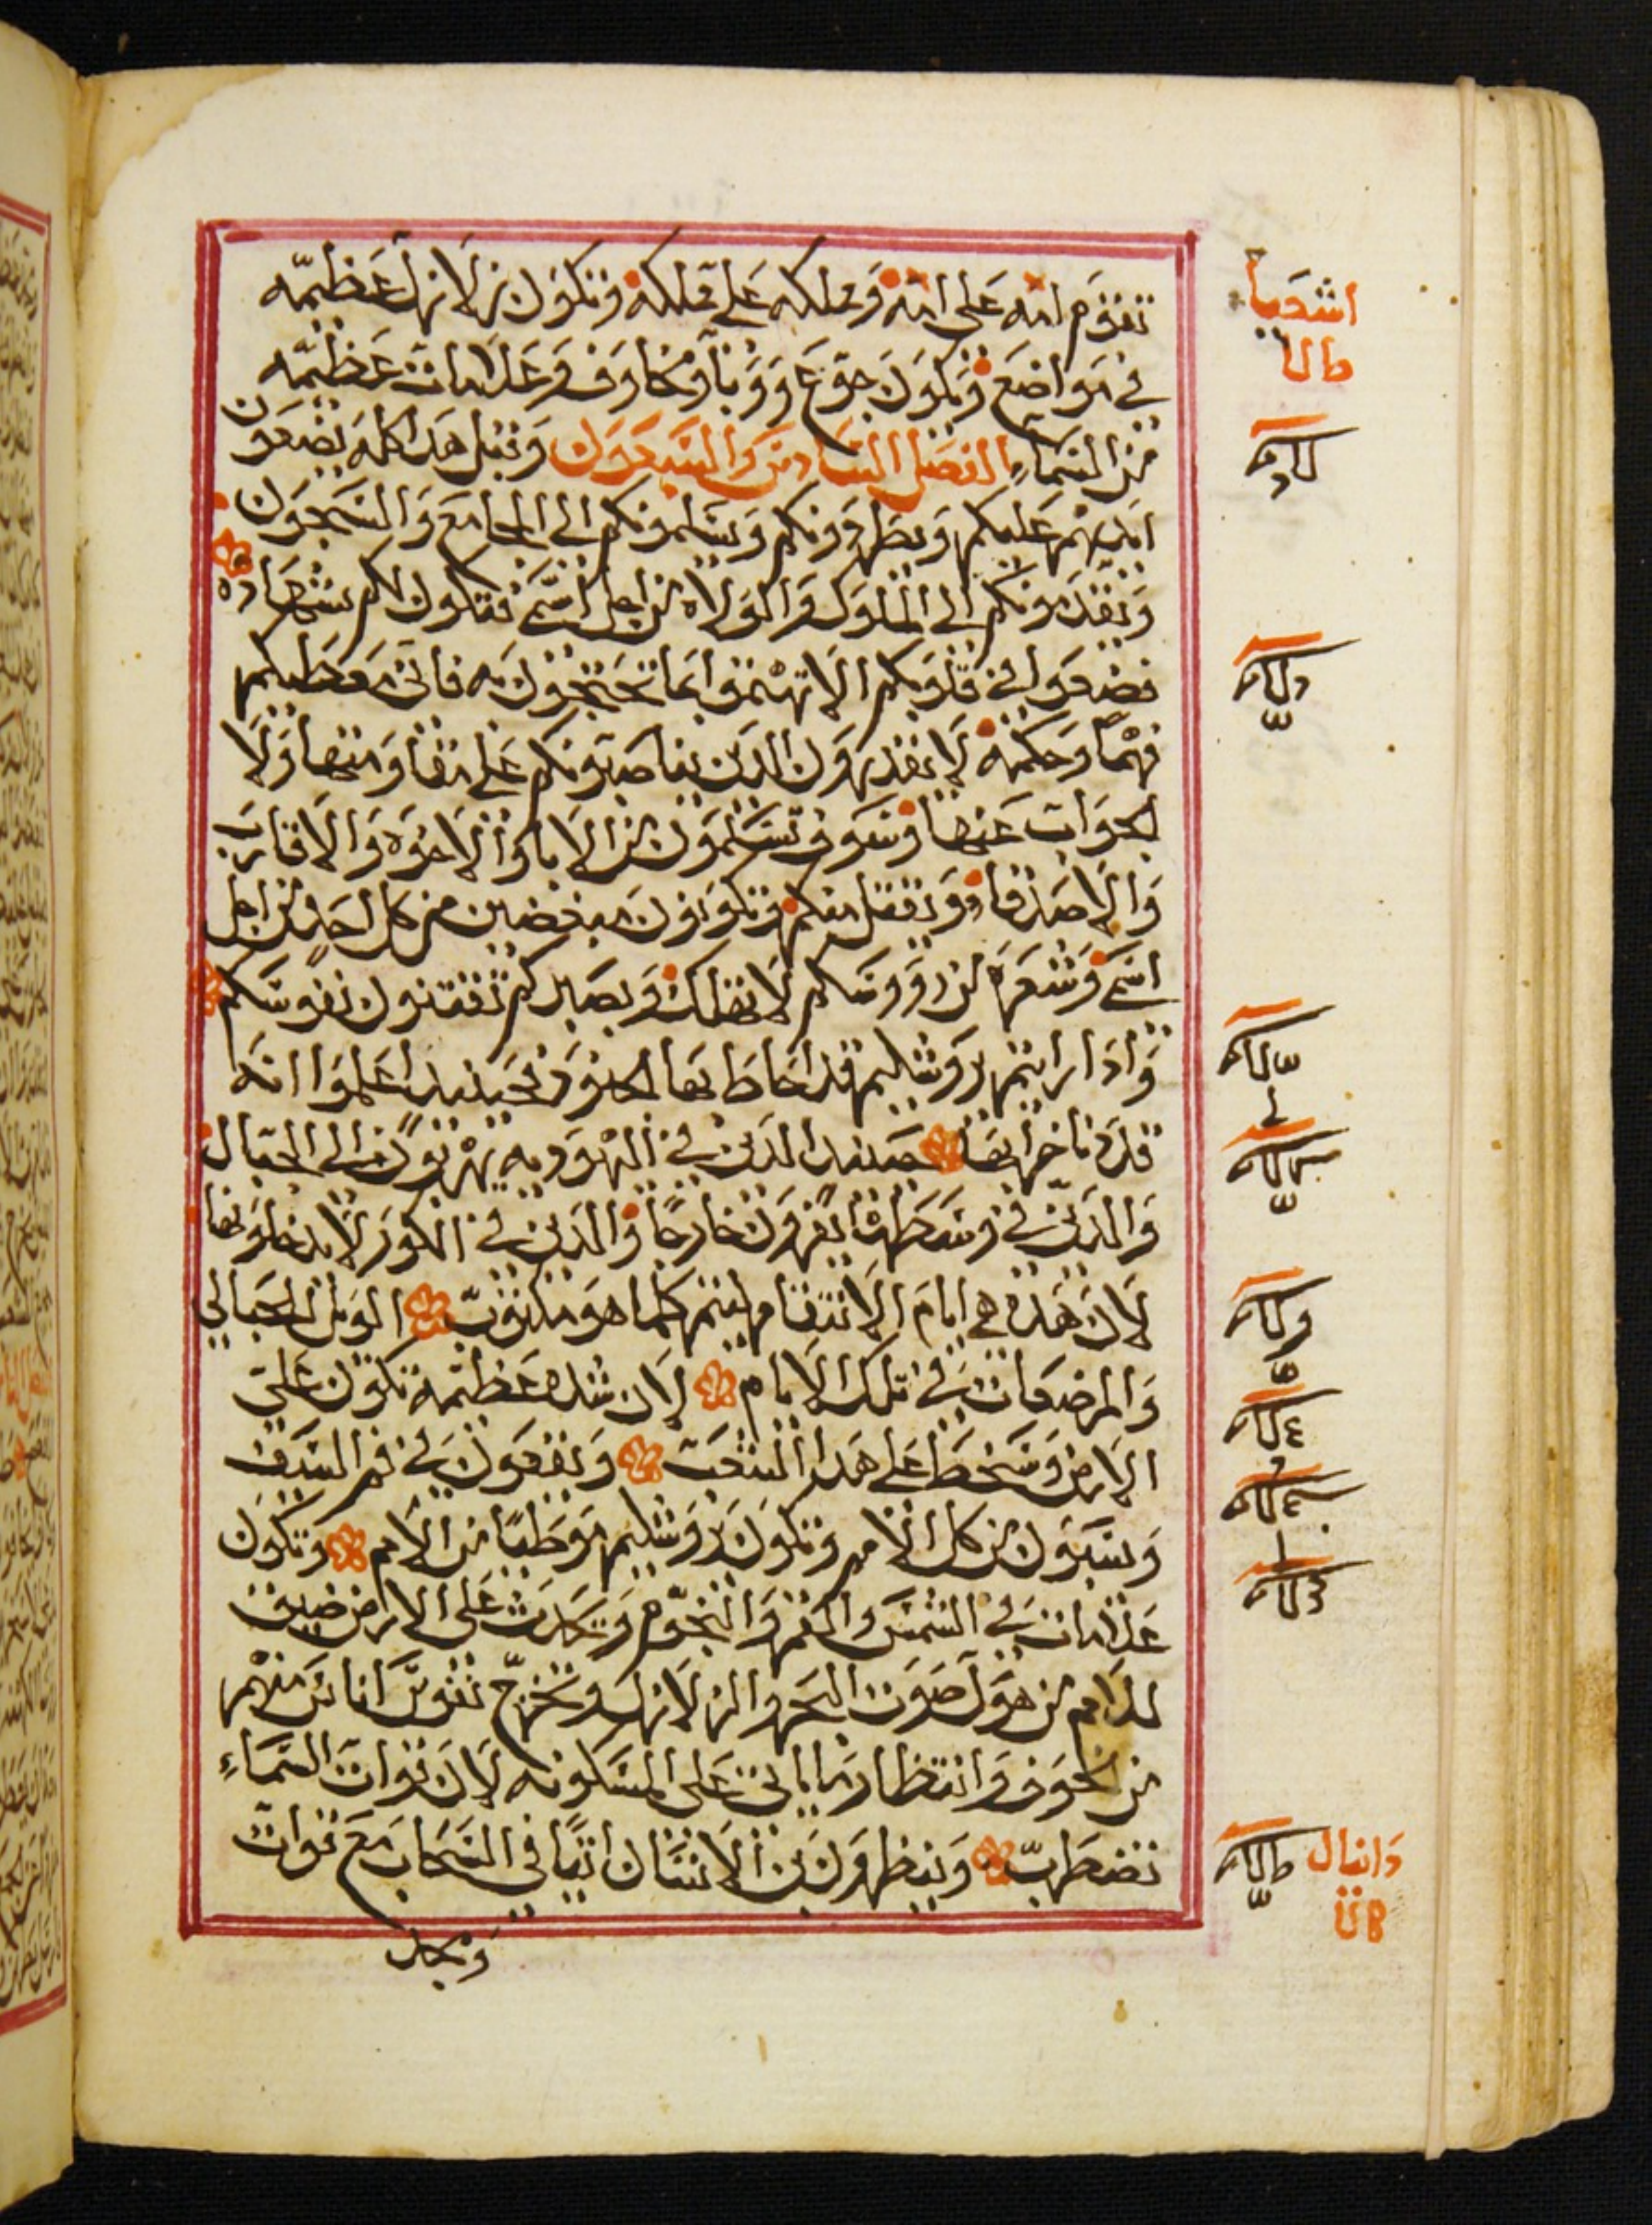 تقوم امه على امه ومملكه على مملكه وتكون زلازل عظيمه
في مواضع ويكون جوع ووبا ومخاوف وعلامات عظيمه
من السماء الفصل السادس والسبعون وقبل هدا كله يضعون
ايديهم عليكم ويطردونكم ويسلمونكم الى المجامع والسجون
ويقدمونكم الى الملوك والولاه من اجل اسمي فتكون لكم شهاده
فضعوا في قلوبكم الا تهتموا بما تحتجون به فاني معطيكم
فهما وحكمه لا يقدرون الدين يناصبونكم على مقاومتها ولا
الجواب عنها وسوف تسلمون من الابا والاخوه والاقارب
والاصدقا ويقتل منكم وتكونون مبغضين من كل احد من اجل
اسمي وشعره من رووسكم لا تهلك وبصبركم تقتنون نفوسكم
وادا رايتم يروشليم قد احاط بها الجنود فحينيد اعلموا انه
قد دنا خرابها حينيد الدين في اليهوديه يهربون الى الجبال
والدين في وسطها يفرون خارجا والدين في الكور لا يدخلونها
لان هده هي ايام الانتقام ليتم كلما هو مكتوب الويل للحبالى
والمرضعات في تلك الايام لان شده عظيمه تكون على
الارض وسخط على هدا الشعب ويقعون في فم السيف
ويسبون من كل الامم وتكون يروشليم موطيا من الامم وتكون
علامات في الشمس والقمر والنجوم وتحدث على الارض ضيق
للامم من هول صوت البحر والزلازل وتخرج نفوس اناس منهم
من الخوف وانتظار ما ياتي على المسكونه لان قوات السماء
تضطرب وينظرون ابن الانسان اتيا في السحاب مع قوات
ومجد
اشعيا
دانيال